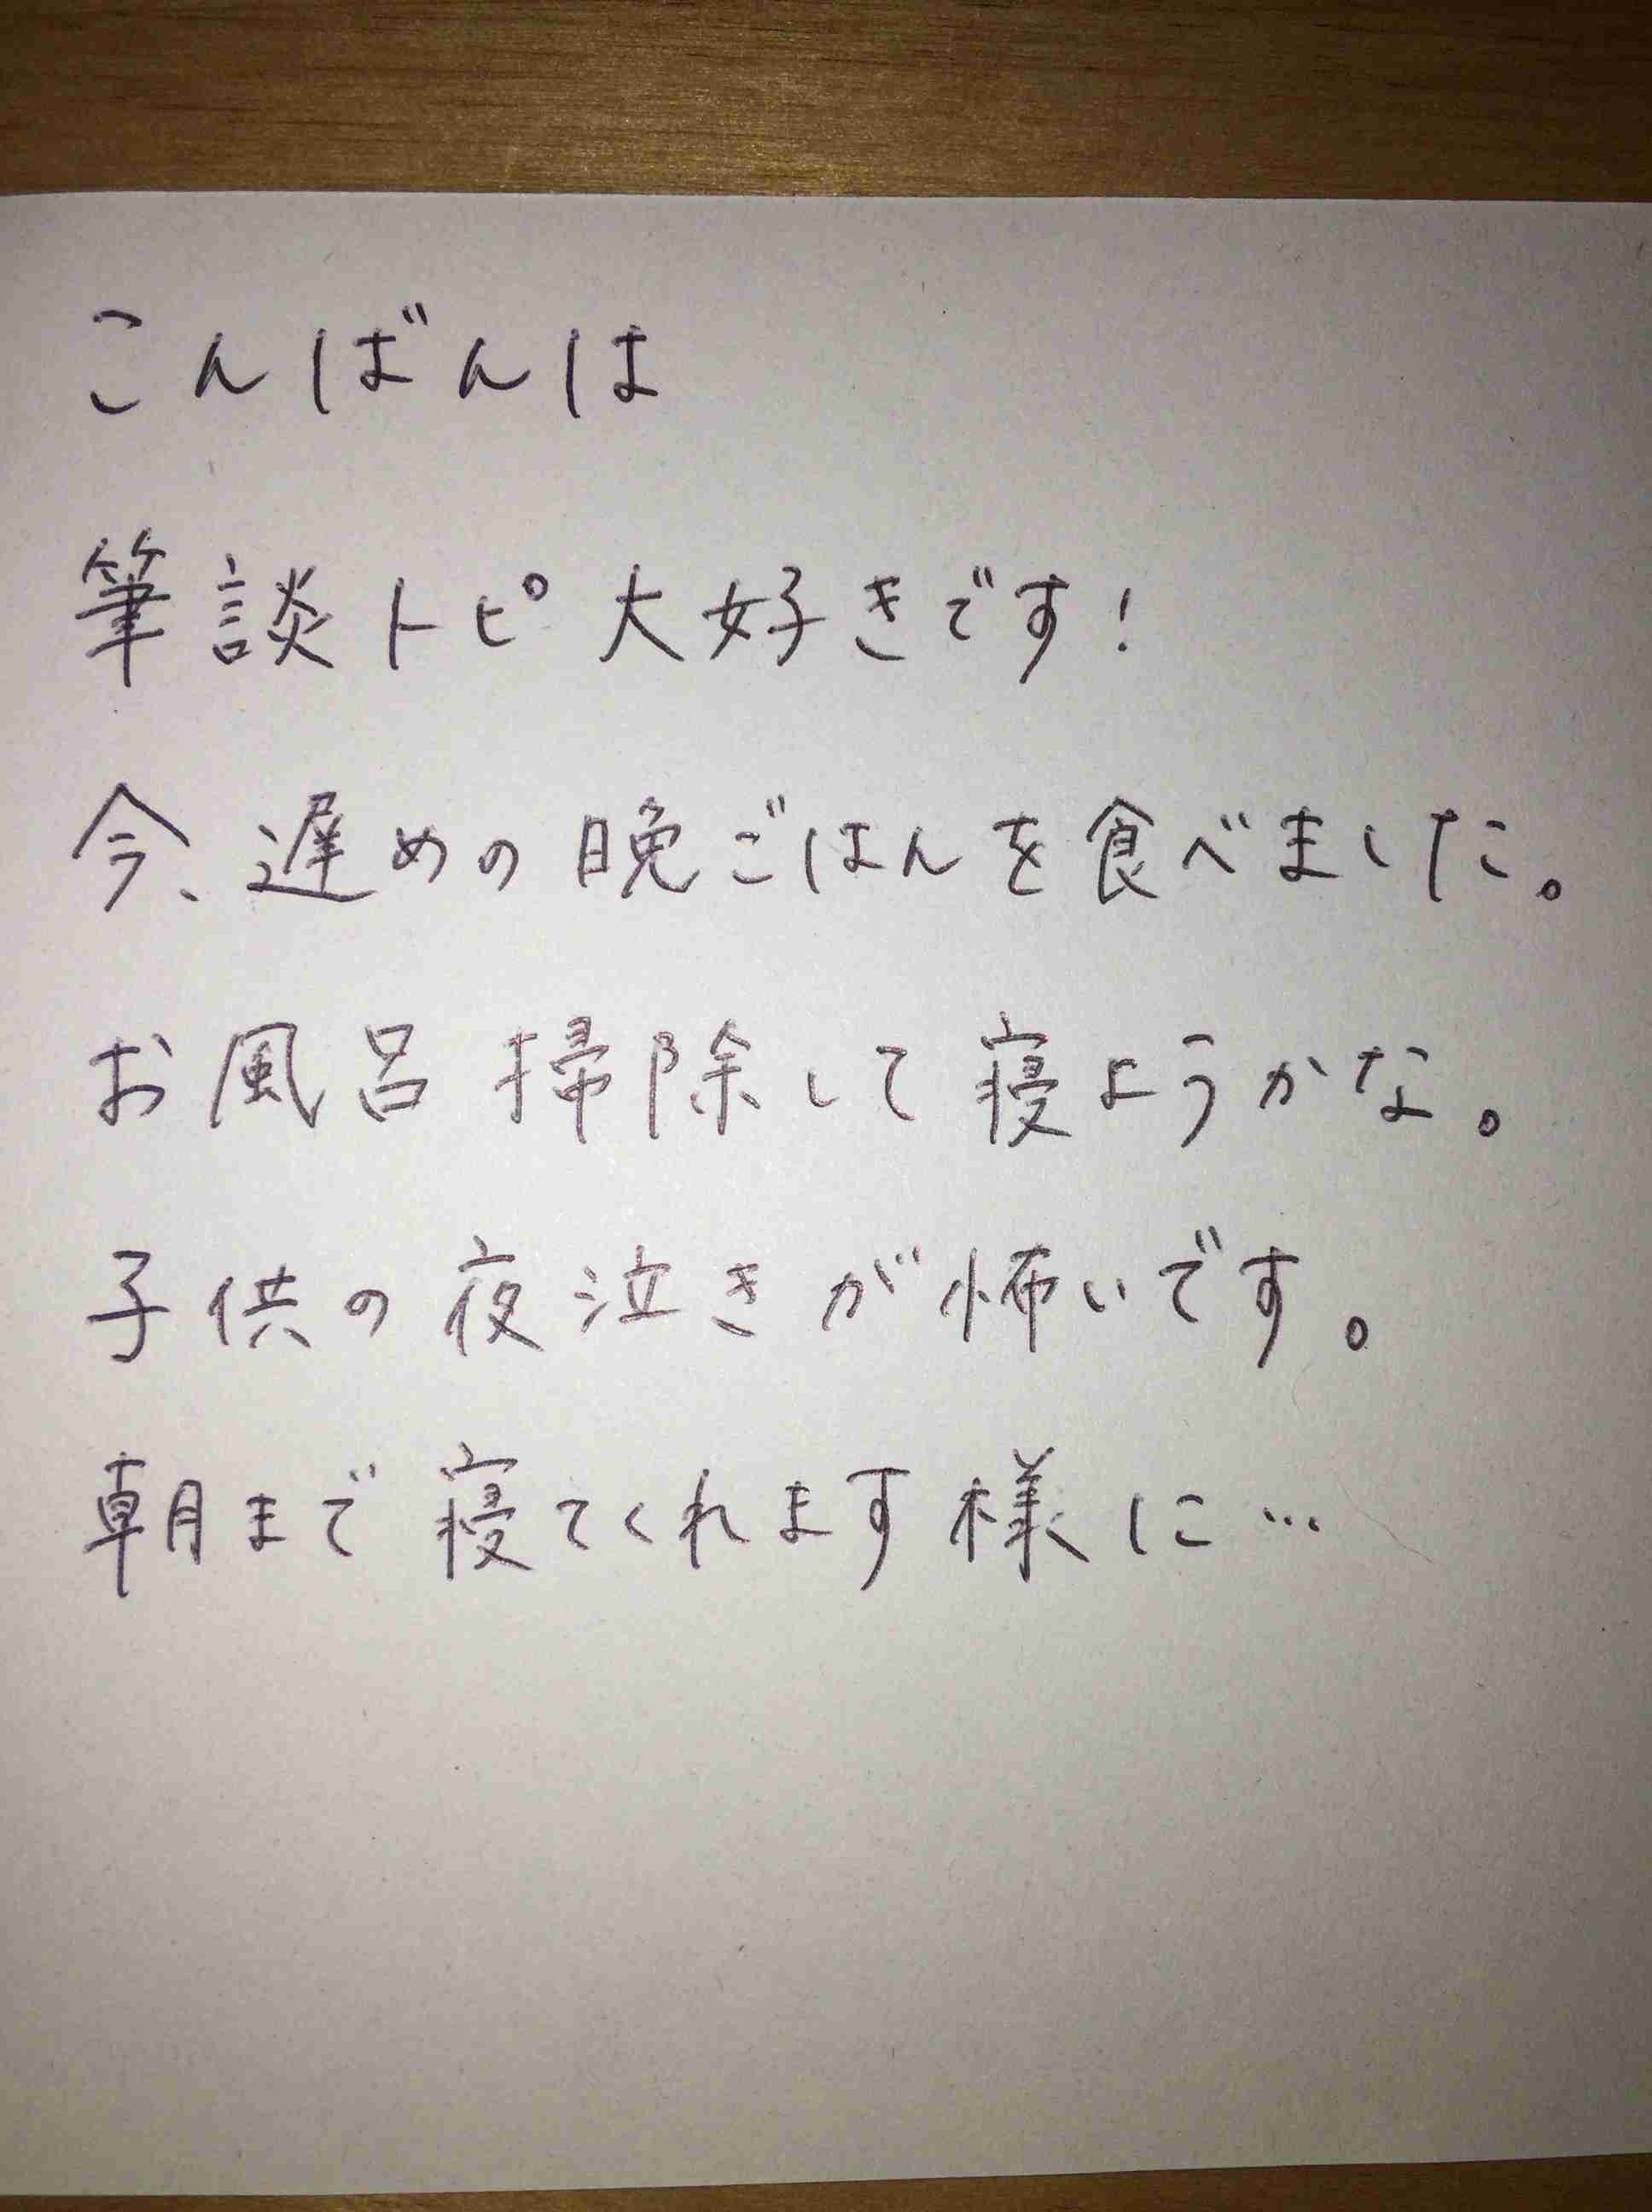 こんばんは
筆談トピ大好きです!
今、遅めの晩ごはんを食べました。
お風呂掃除して寝ようかな。
子供の夜泣きが怖いです。
朝まで寝てくれます様に…